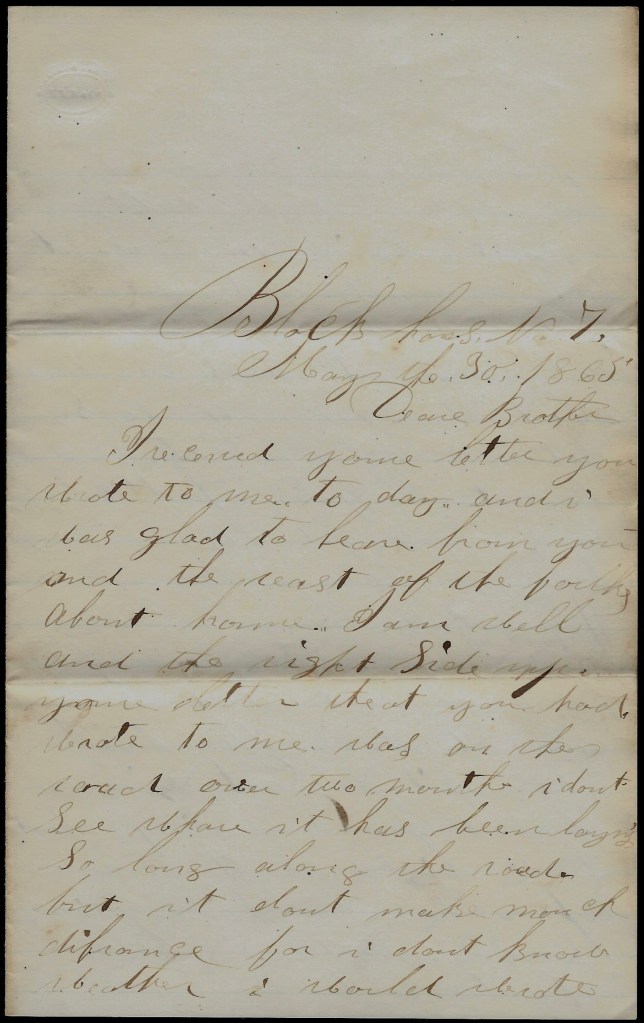 Block hous. No 7.
May the. 30. 1865
Deare Brother
I receved youre letter you
wrote to me. to day.. and i
was glad to heare. from you
and the reast of the folks
about home.. I am well
and the right Side upp.
youre letter that you had.
wrote to me. was on the
road over two months i dont
See whare it has been laying
So long along the road.
but it dont make mouch
difrance for i dont know
weather i would wrote